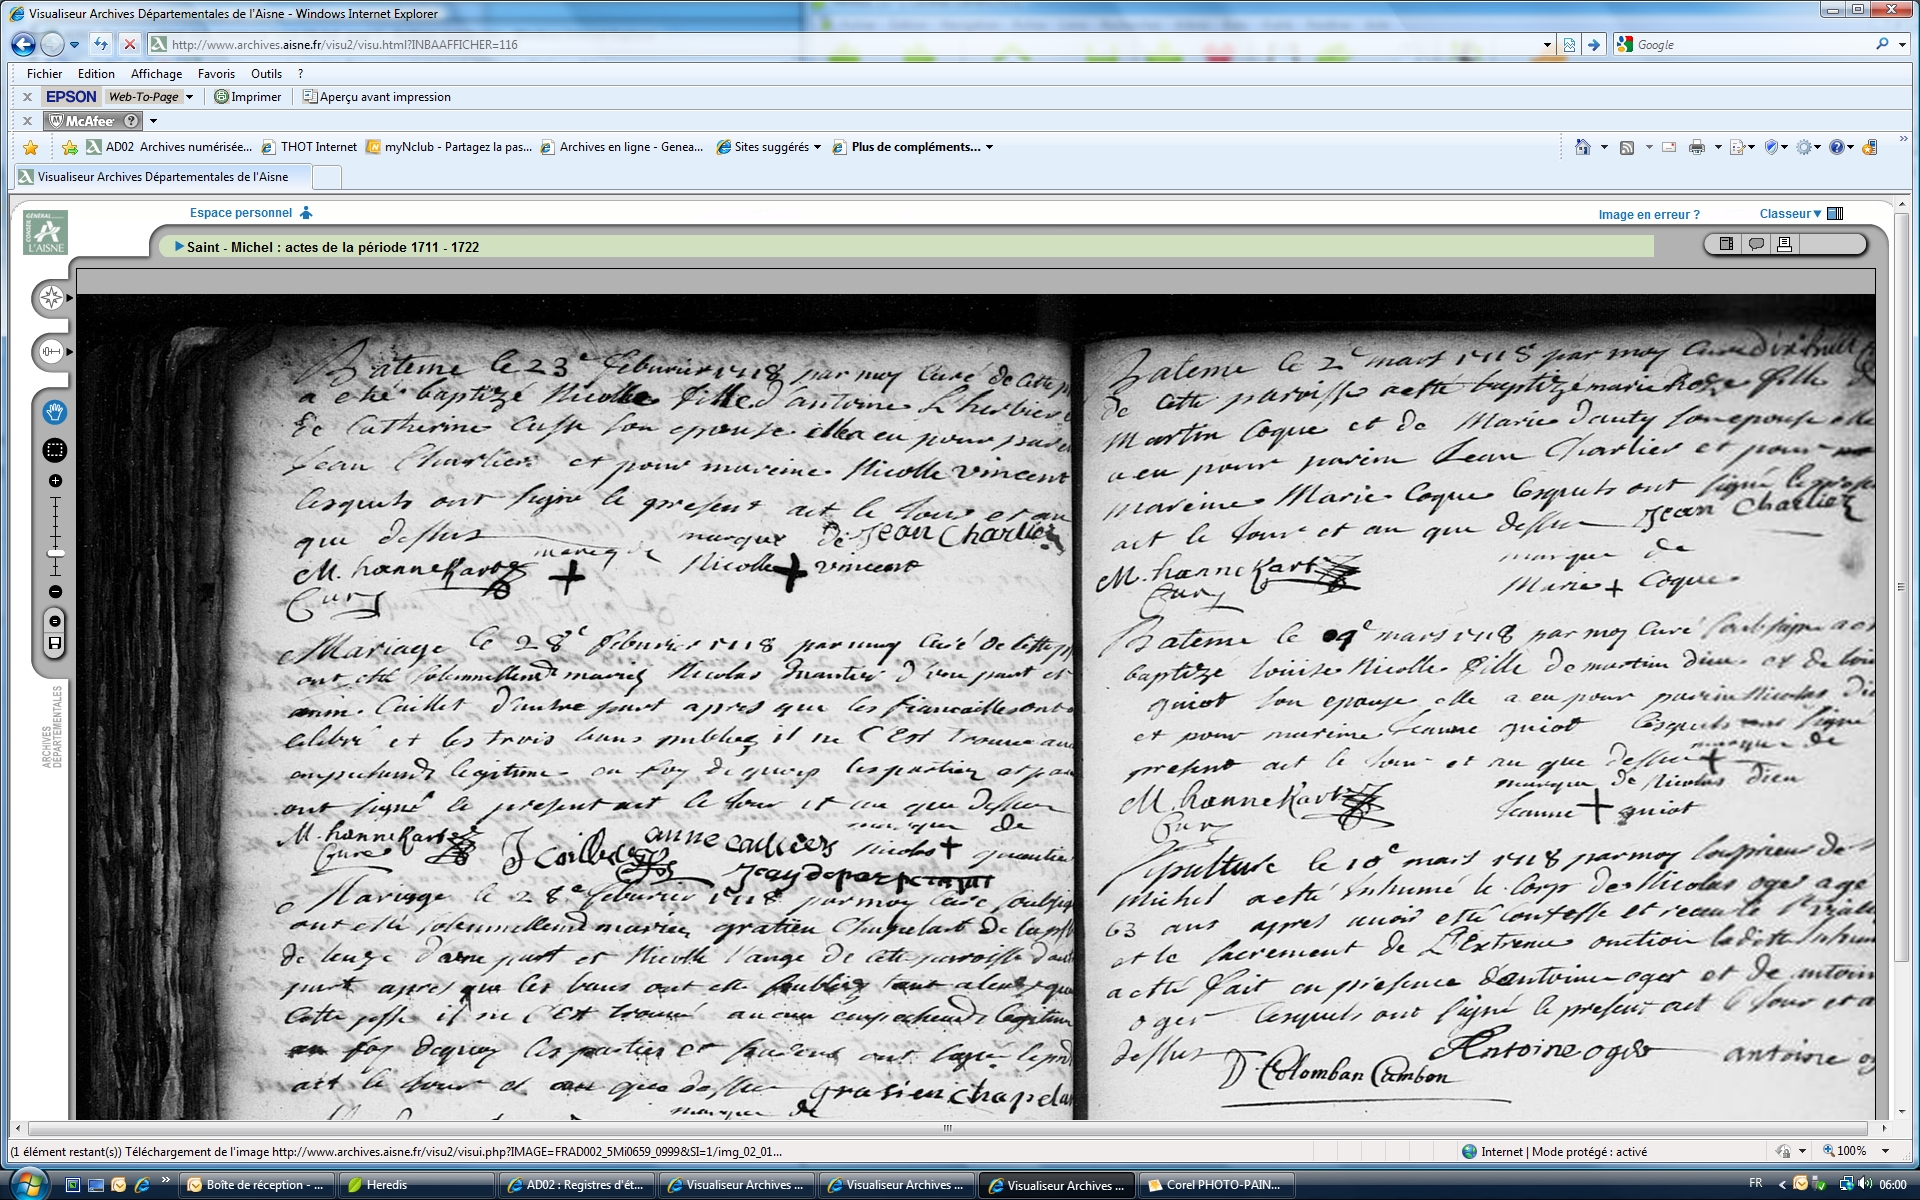 Visualiseur Archives Départementales de l'Aisne - Windows Internet Explorer
http://www.archives.aisne.fr/visu2/visu.html?INBAAFFICHER=116
Google
Fichier Edition Affichage Favoris Outils ?
x EPSON Web-To-Page Imprimer Aperçu avant impression
x McAfee ?
AD02 Archives numérisée... THOT Internet myNclub - Partagez la pas... Archives en ligne - Genea... Sites suggérés Plus de compléments... »
Visualiseur Archives Départementales de l'Aisne
CONSEIL GÉNÉRAL L'AISNE
Espace personnel
Image en erreur ? Classeur
Saint - Michel : actes de la période 1711 - 1722
ARCHIVES DÉPARTEMENTALES
Bateme le 23e feburier 1718 par moy Curé de cette
a eté baptizé Nicolle fille d'antoine L'herbier
de Catherine son epouse ella eu pour
Jean Charlier et pour mareine Nicolle vincent
lesquels ont signe le present act le Jour et an
que dessus marque de Jean Charlier
M. hannekart Nicolle + vincent
Curé +
Mariage le 28e feburier 1718 par moy Curé de cette
ont esté solemnellemt mariez Nicolas d'une part et
Caillet d'autre part apres que les fiancailles ont
celebré et les trois bans publiez il ne C'Est trouvé
legitime en foy de quoy les parties et
ont signé le present act le Jour et an que dessus
M. hannekart anne marque de
Curé Nicolas +
Mariage le 28e feburier 1718 par moy Curé
ont esté solemnellemt mariez gratien Chapelart de
de leuze d'une part et Nicolle l'ange de cette paroisse
part apres que les bans ont esté publiez tant a
cette il ne C'Est trouvé aucun legitime
en foy dequoy les parties et ont signé
act le Jour et an que dessus grasien chapela
marque de
Bateme le 2e mars 1718 par moy Curé
de cette paroisse a esté baptizé marie Roze fille
Martin Coque et de Marie dauty son epouse elle
a eu pour parin Jean Charlier et pour
mareine Marie Coque lesquels ont signé le
act le Jour et an que dessus Jean Charlier
M. hannekart marque de
Curé Marie + Coque
Bateme le 9e mars 1718 par moy Curé
baptizé louise Nicolle fille de martin dieu et de
guiot son epouse elle a eu pour parin Nicolas
et pour marine Jeanne guiot lesquels ont signé
present act le Jour et an que dessus + marque de
M. hannekart marque de Nicolas dieu
Curé Jeanne + guiot
Sepulture le 10e mars 1718 par moy de
Michel a esté Inhumé le Corp de Nicolas oger agé
63 ans apres avoir esté Confesse et receu le
et le sacrement de L'Extreme onction
a esté fait en presence d'antoine oger et de antoin
oger lesquels ont signé le present act le Jour et a
dessus Antoine oger antoine og
D. Colomban Cambon
(1 élément restant(s)) Téléchargement de l'image http://www.archives.aisne.fr/visu2/visui.php?IMAGE=FRAD002_5Mi0659_0999&SI=1/img_02_01...
Internet | Mode protégé : activé 100%
» Boîte de réception - ... Heredis AD02 : Registres d'ét... Visualiseur Archives ... Visualiseur Archives ... Visualiseur Archives ... Corel PHOTO-PAIN... FR 06:00